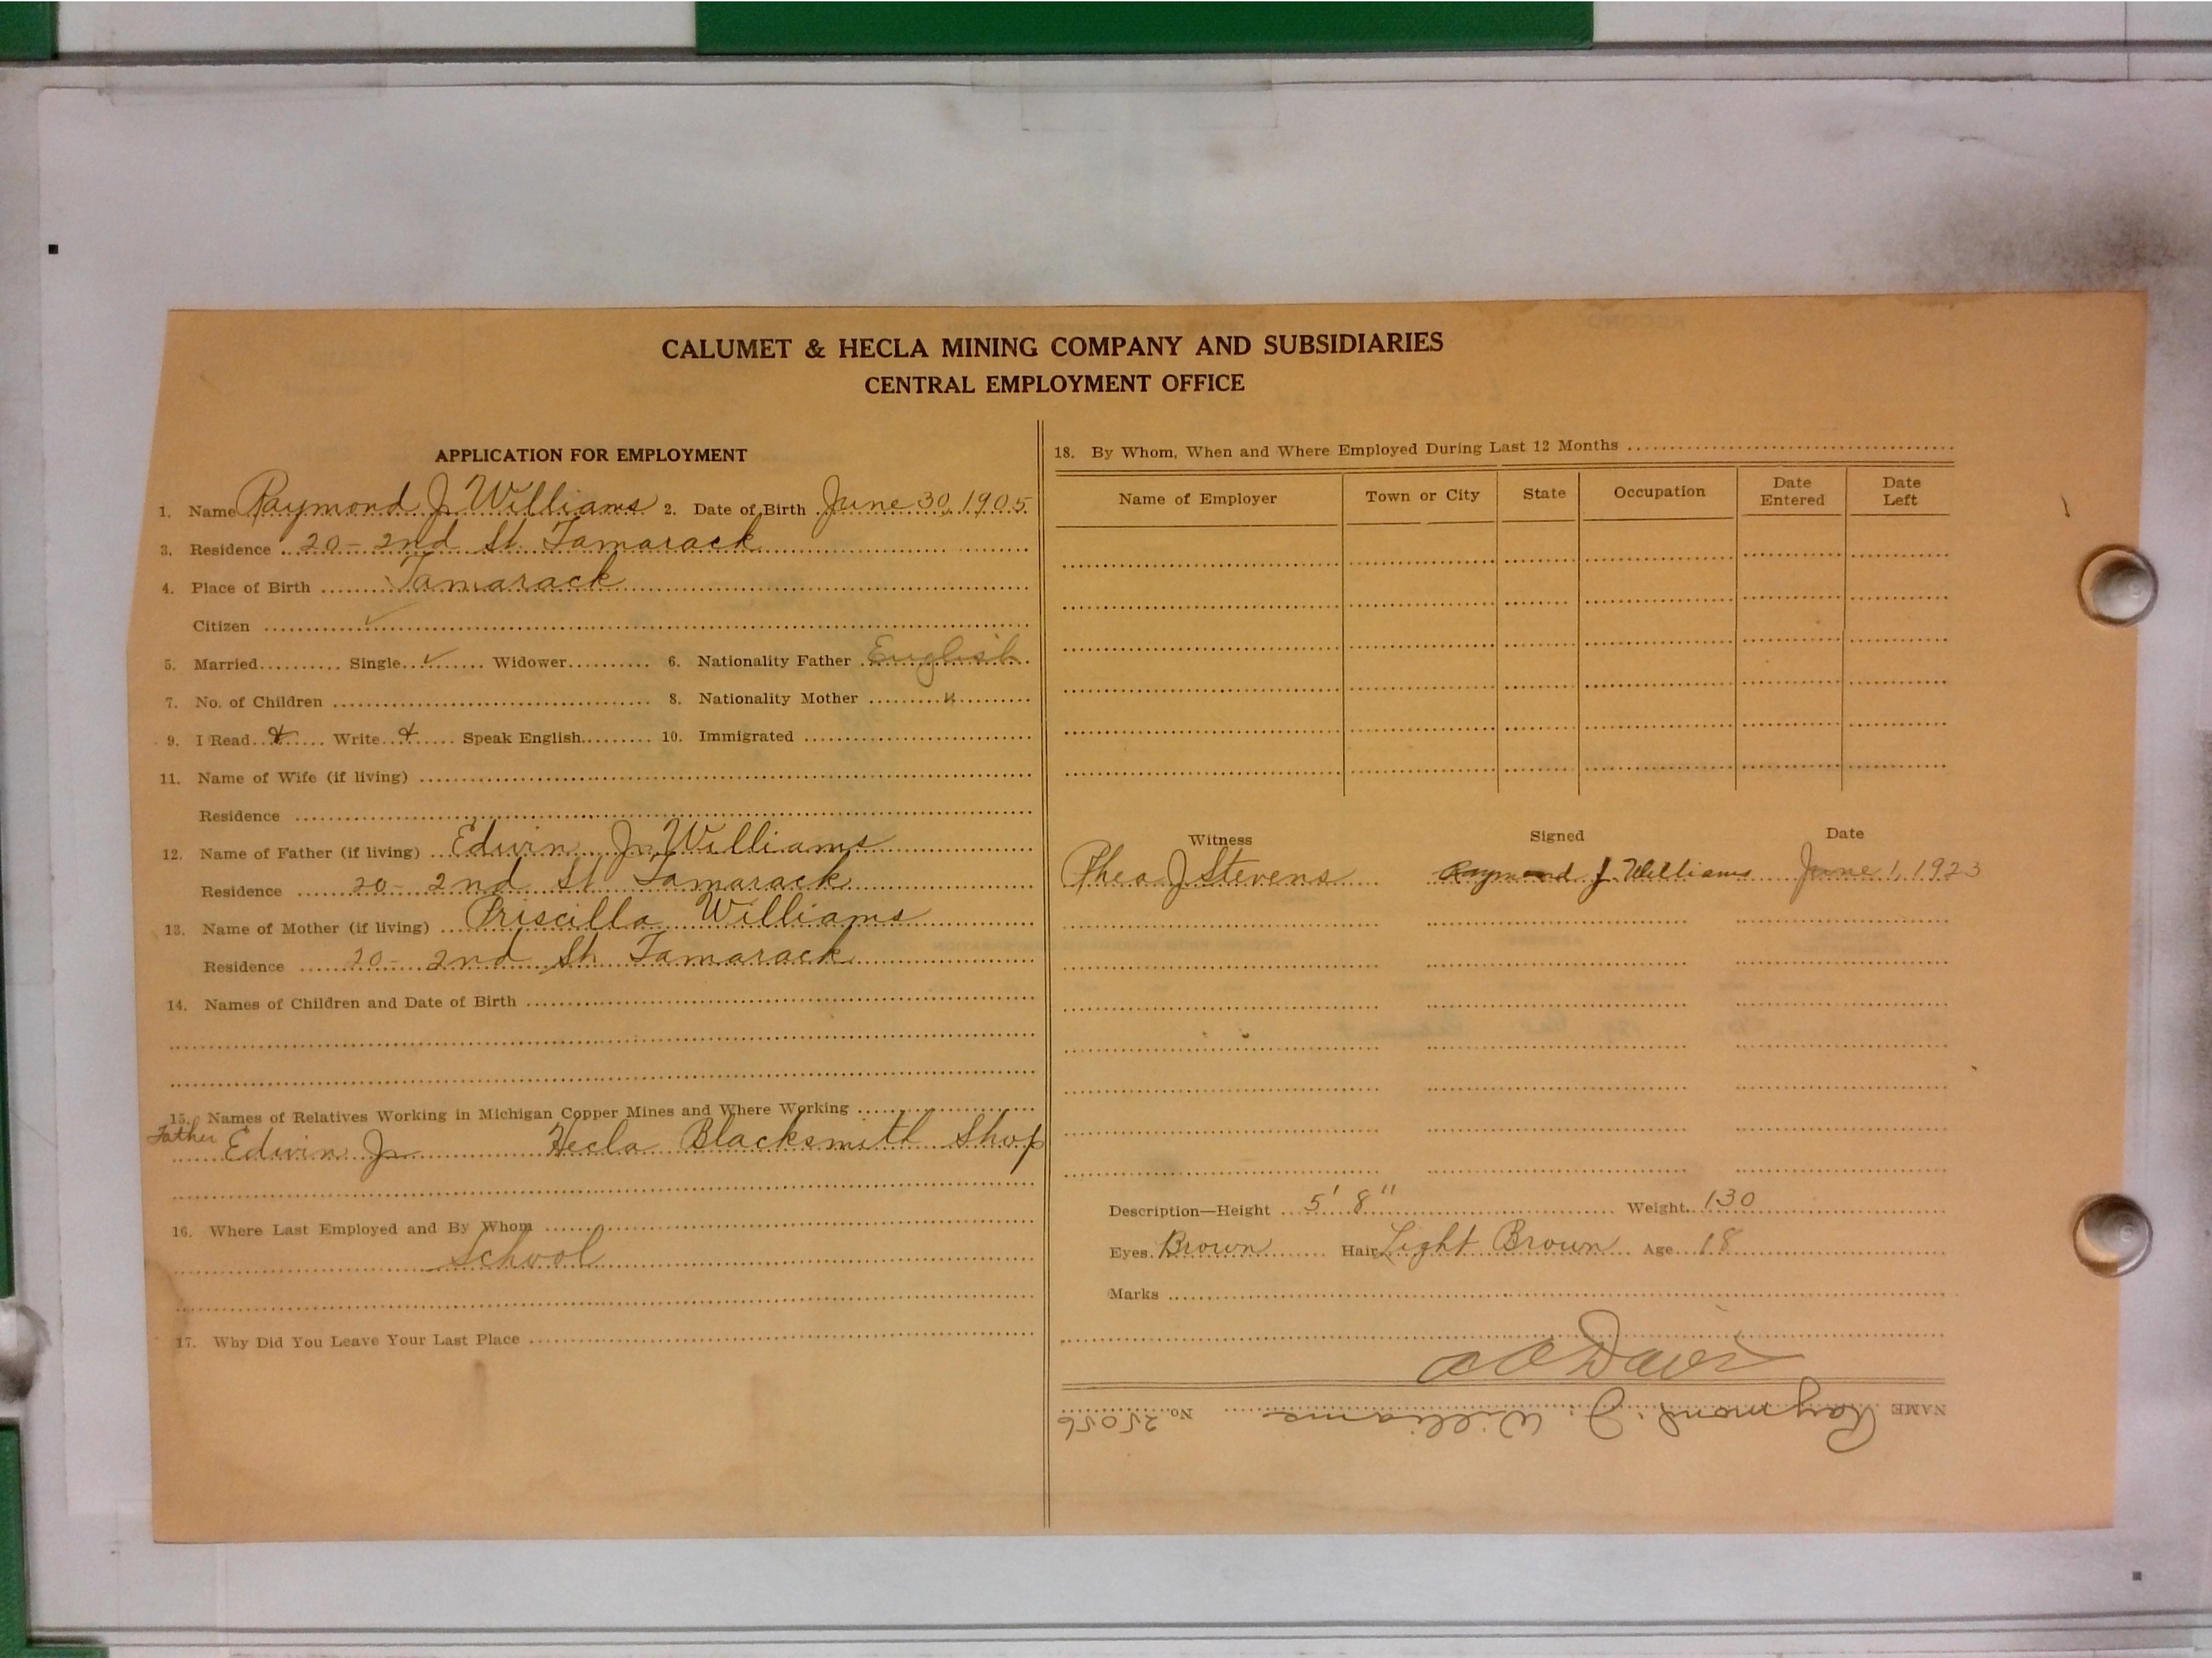 CALUMET & HECLA MINING COMPANY AND SUBSIDIARIES
CENTRAL EMPLOYMENT OFFICE
APPLICATION FOR EMPLOYMENT
1. Name Raymond J. Williams 2. Date of Birth June 30, 1905
3. Residence 20 - 2nd St. Tamarack
4. Place of Birth Tamarack
Citizen ✓
5. Married Single ✓ Widower 6. Nationality Father English
7. No. of Children 8. Nationality Mother "
9. I Read Write Speak English 10. Immigrated
11. Name of Wife (if living)
Residence
12. Name of Father (if living) Edwin Jr. Williams
Residence 20 - 2nd St Tamarack
13. Name of Mother (if living) Priscilla Williams
Residence 20 - 2nd St. Tamarack
14. Names of Children and Date of Birth
15. Names of Relatives Working in Michigan Copper Mines and Where Working
Father Edwin Jr. Hecla Blacksmith Shop
16. Where Last Employed and By Whom
School
17. Why Did You Leave Your Last Place
18. By Whom, When and Where Employed During Last 12 Months
Name of Employer Town or City State Occupation Date Entered Date Left
Witness Signed Date
J Stevens Raymond J Williams June 1, 1923
Description—Height 5' 8" Weight 130
Eyes Brown Hair Light Brown Age 18
Marks
Davis
NAME Raymond J. Williams No. 25056